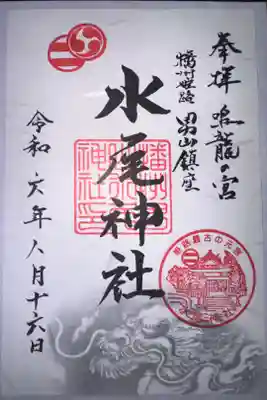 奉拝 鳴龍の宮
播州姫路 男山鎮座
水尾神社
令和六年八月十六日
姫路最古の元宮